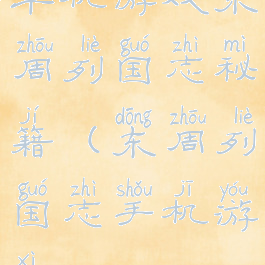 zhōu liè guó zhì mì
周列国志秘
jí dōng zhōu liè
籍（东周列
guó zhì shǒu jī yóu
国志手机游
xì